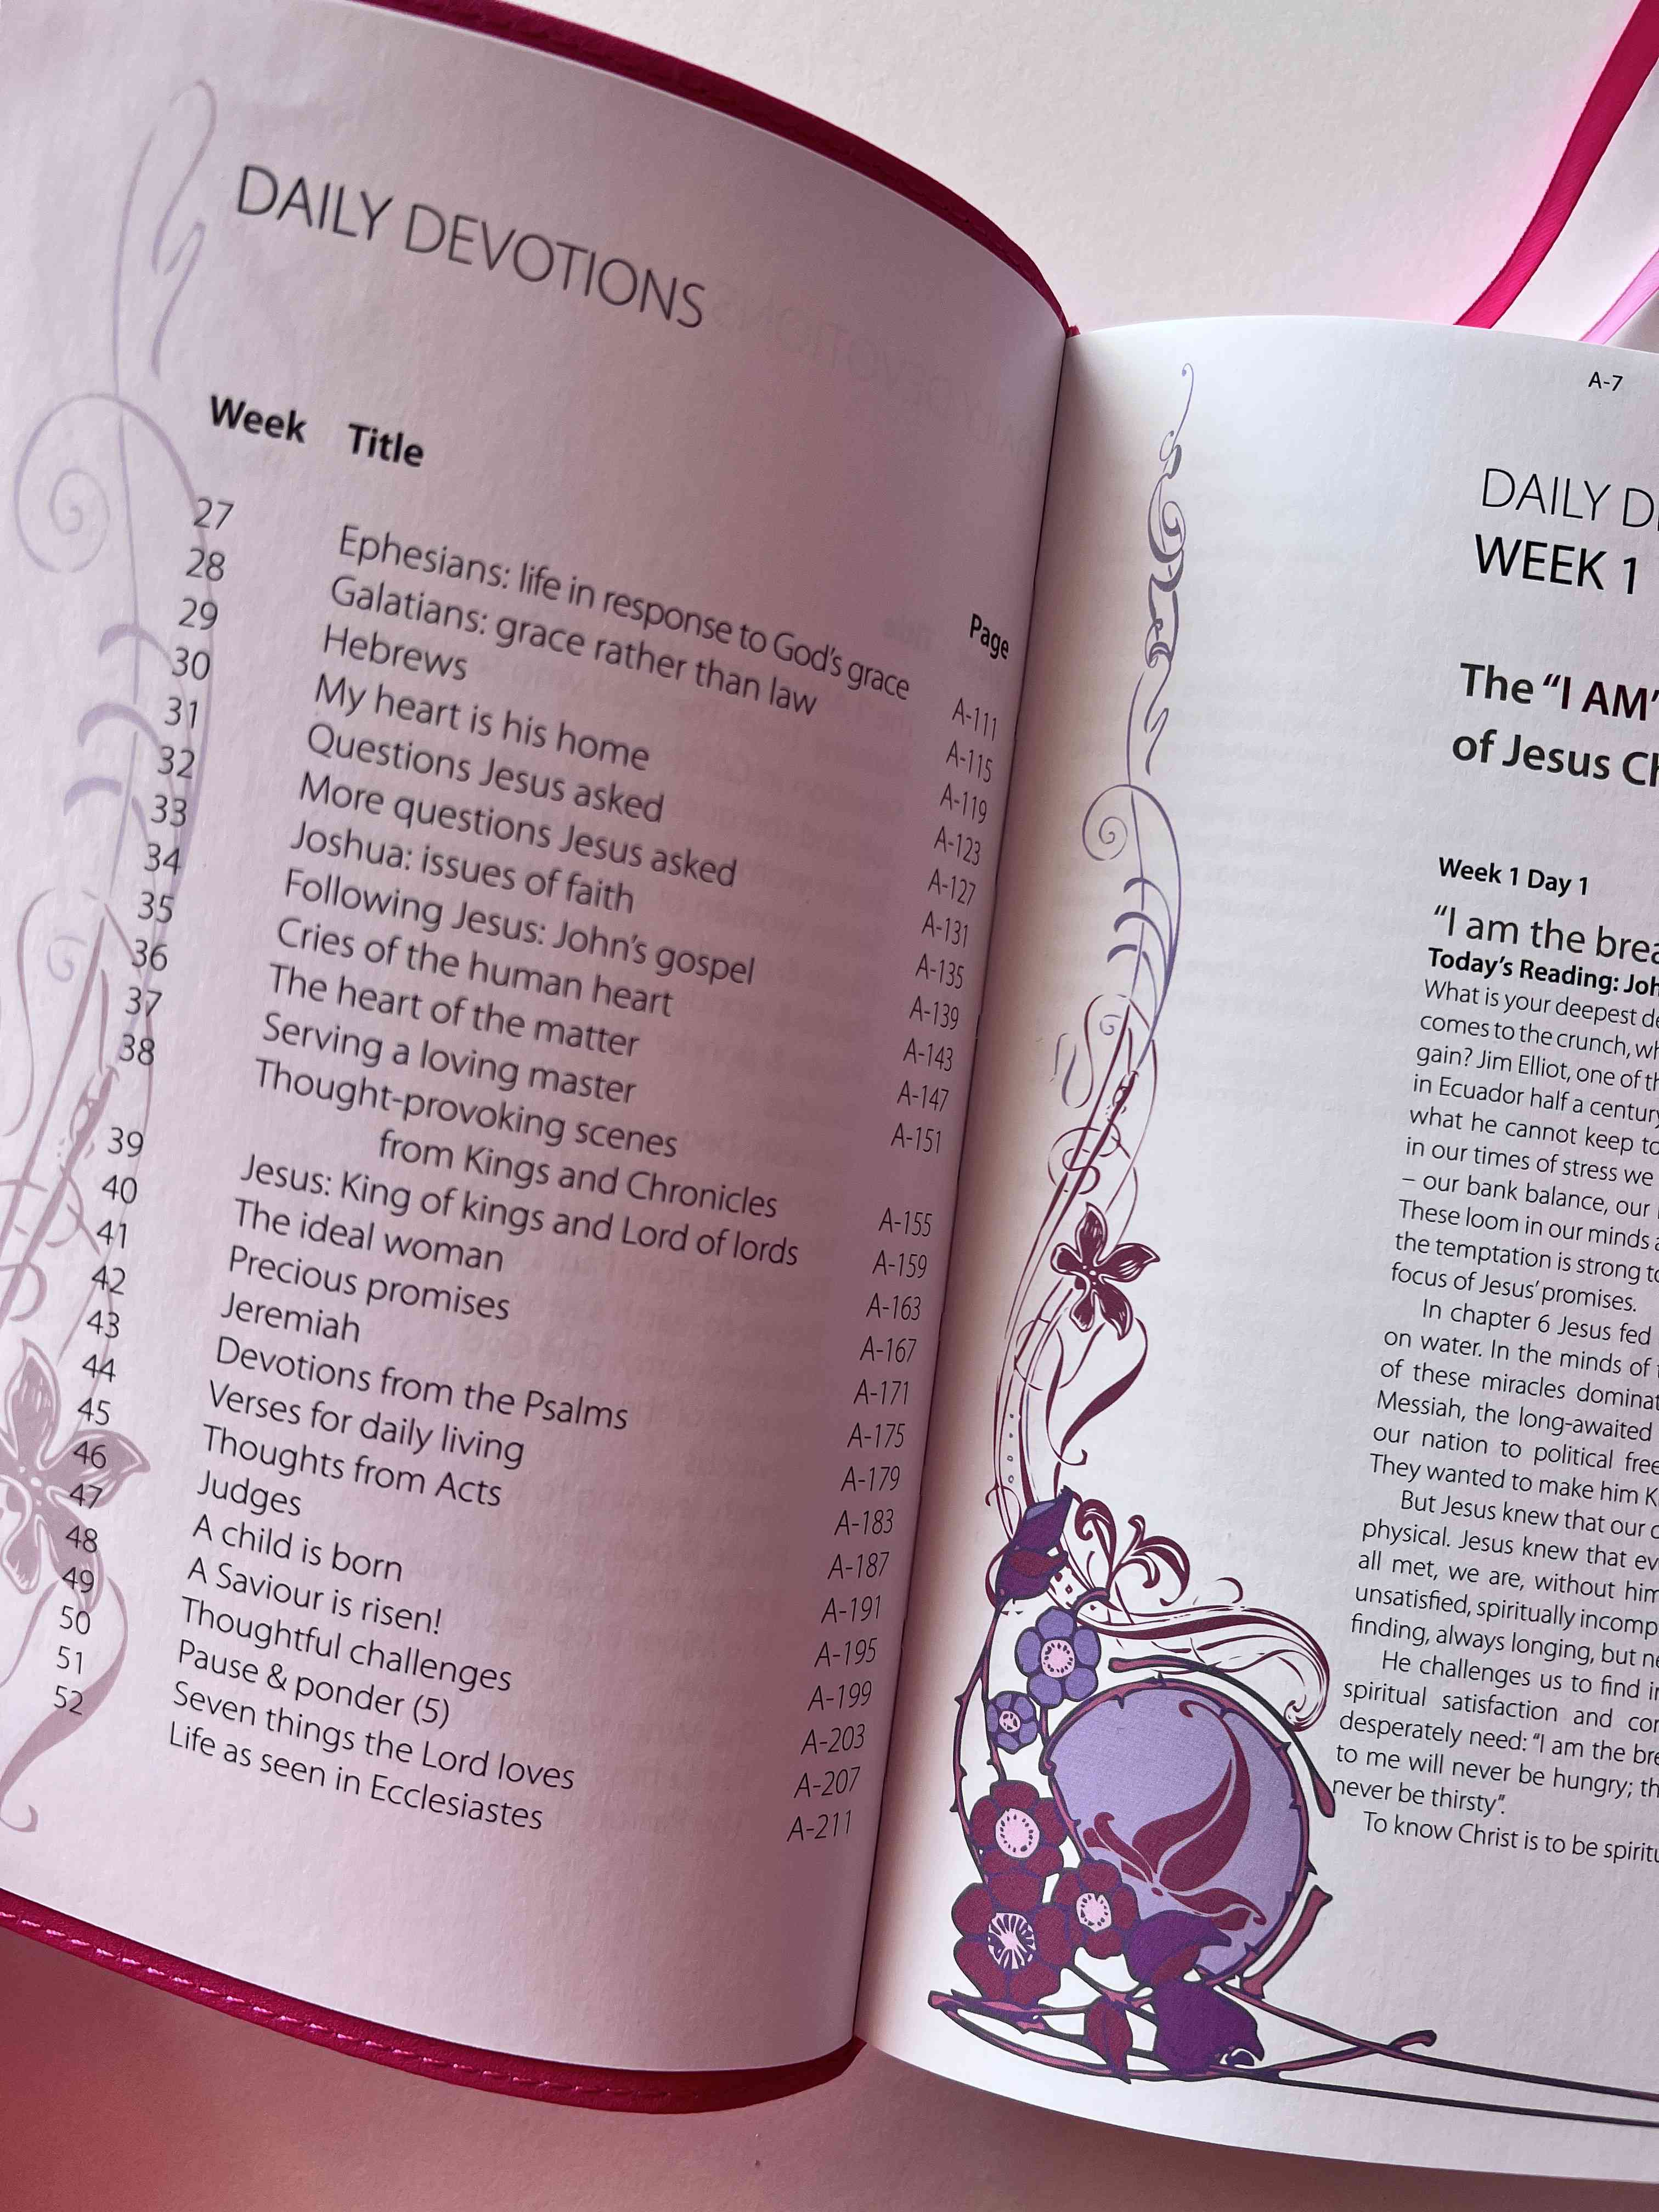 DAILY DEVOTIONS
Week Title Page
27 Ephesians: life in response to God's grace A-111
28 Galatians: grace rather than law A-115
29 Hebrews A-119
30 My heart is his home A-123
31 Questions Jesus asked A-127
32 More questions Jesus asked A-131
33 Joshua: issues of faith A-135
34 Following Jesus: John's gospel A-139
35 Cries of the human heart A-143
36 The heart of the matter A-147
37 Serving a loving master A-151
38 Thought-provoking scenes
from Kings and Chronicles A-155
39 Jesus: King of kings and Lord of lords A-159
40 The ideal woman A-163
41 Precious promises A-167
42 Jeremiah A-171
43 Devotions from the Psalms A-175
44 Verses for daily living A-179
45 Thoughts from Acts A-183
46 Judges A-187
47 A child is born A-191
48 A Saviour is risen! A-195
49 Thoughtful challenges A-199
50 Pause & ponder (5) A-203
51 Seven things the Lord loves A-207
52 Life as seen in Ecclesiastes A-211
A-7
DAILY D
WEEK 1
The "I AM"
of Jesus Ch
Week 1 Day 1
"I am the brea
Today's Reading: Joh
What is your deepest de
comes to the crunch, wh
gain? Jim Elliot, one of th
in Ecuador half a century
what he cannot keep to
in our times of stress we
– our bank balance, our
These loom in our minds a
the temptation is strong to
focus of Jesus' promises.
In chapter 6 Jesus fed
on water. In the minds of
of these miracles dominat
Messiah, the long-awaited
our nation to political free
They wanted to make him K
But Jesus knew that our
physical. Jesus knew that ev
all met, we are, without him
unsatisfied, spiritually incomp
finding, always longing, but ne
He challenges us to find i
spiritual satisfaction and cor
desperately need: "I am the bre
to me will never be hungry; th
never be thirsty".
To know Christ is to be spiritu